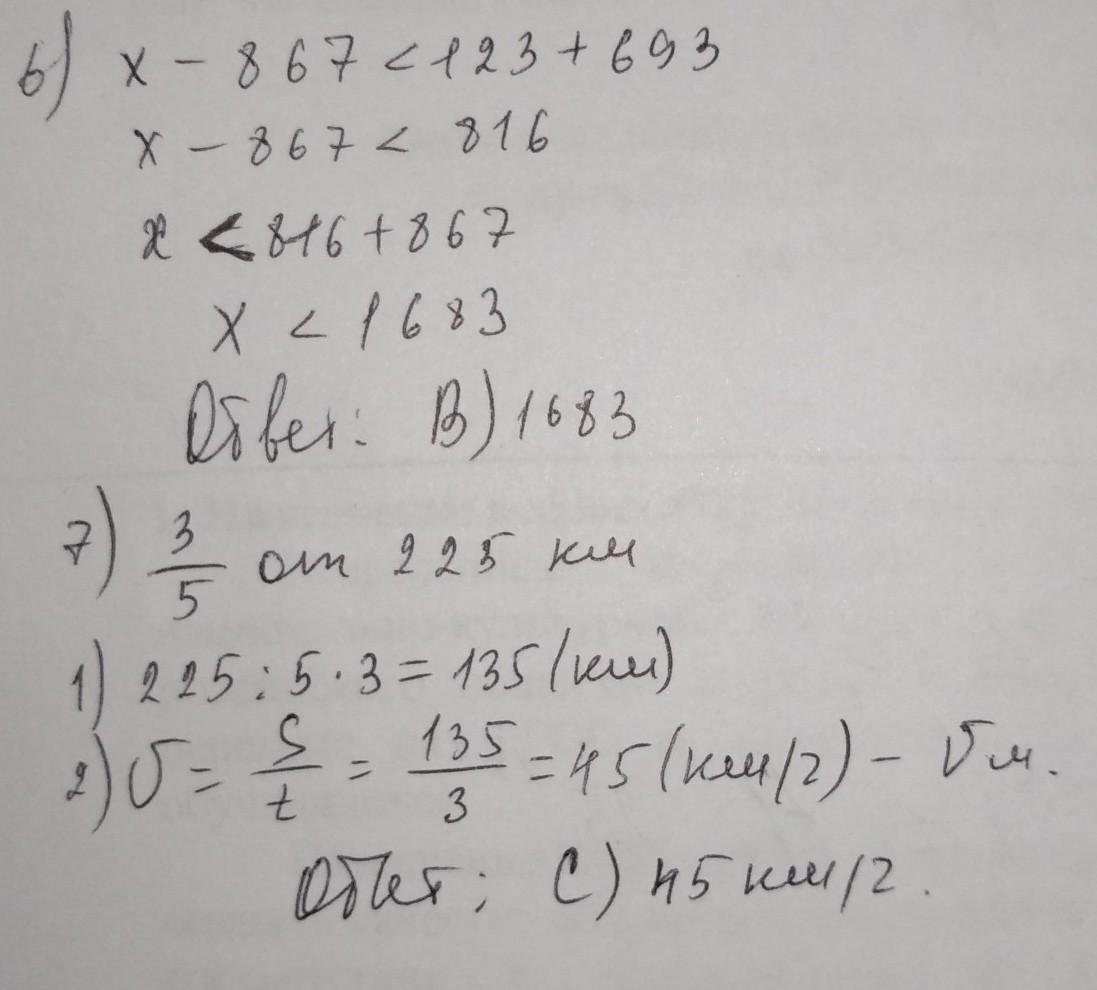 6) x - 867 < 123 + 693
x - 867 < 816
x < 816 + 867
x < 1683
Ответ: B) 1683
7) 3/5 от 225 км
1) 225 : 5 · 3 = 135 (км)
2) v = S/t = 135/3 = 45 (км/г) - v м.
Ответ: C) 45 км/г.